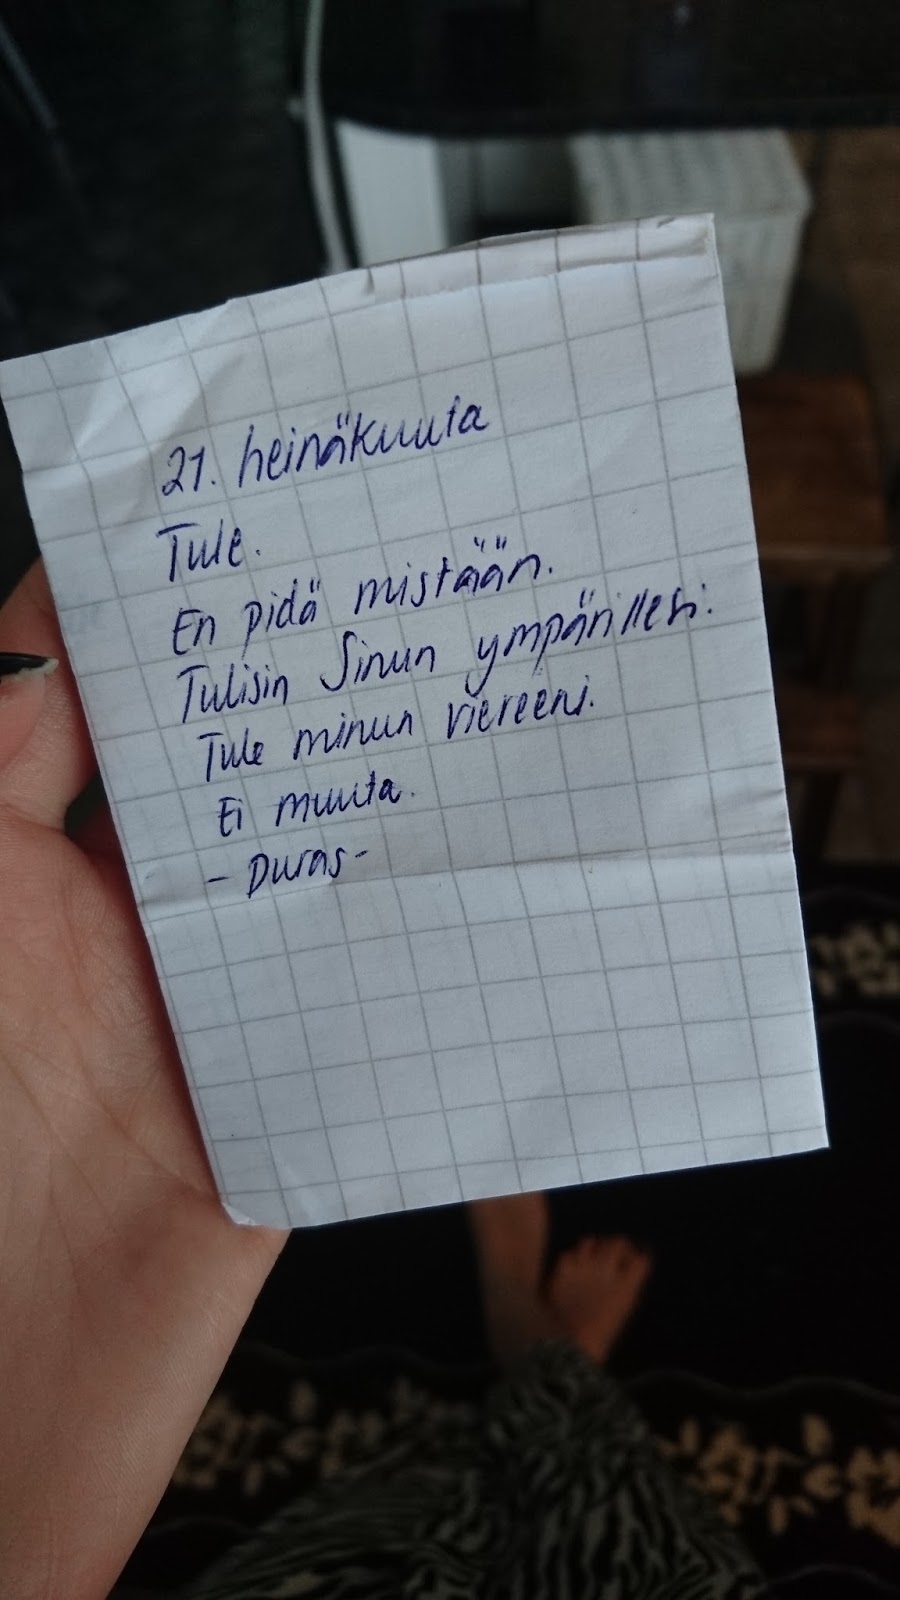 21. heinäkuuta
Tule.
En pidä mistään.
Tulisin Sinun ympärillesi.
Tule minun viereeni.
Ei muuta.
- Duras -